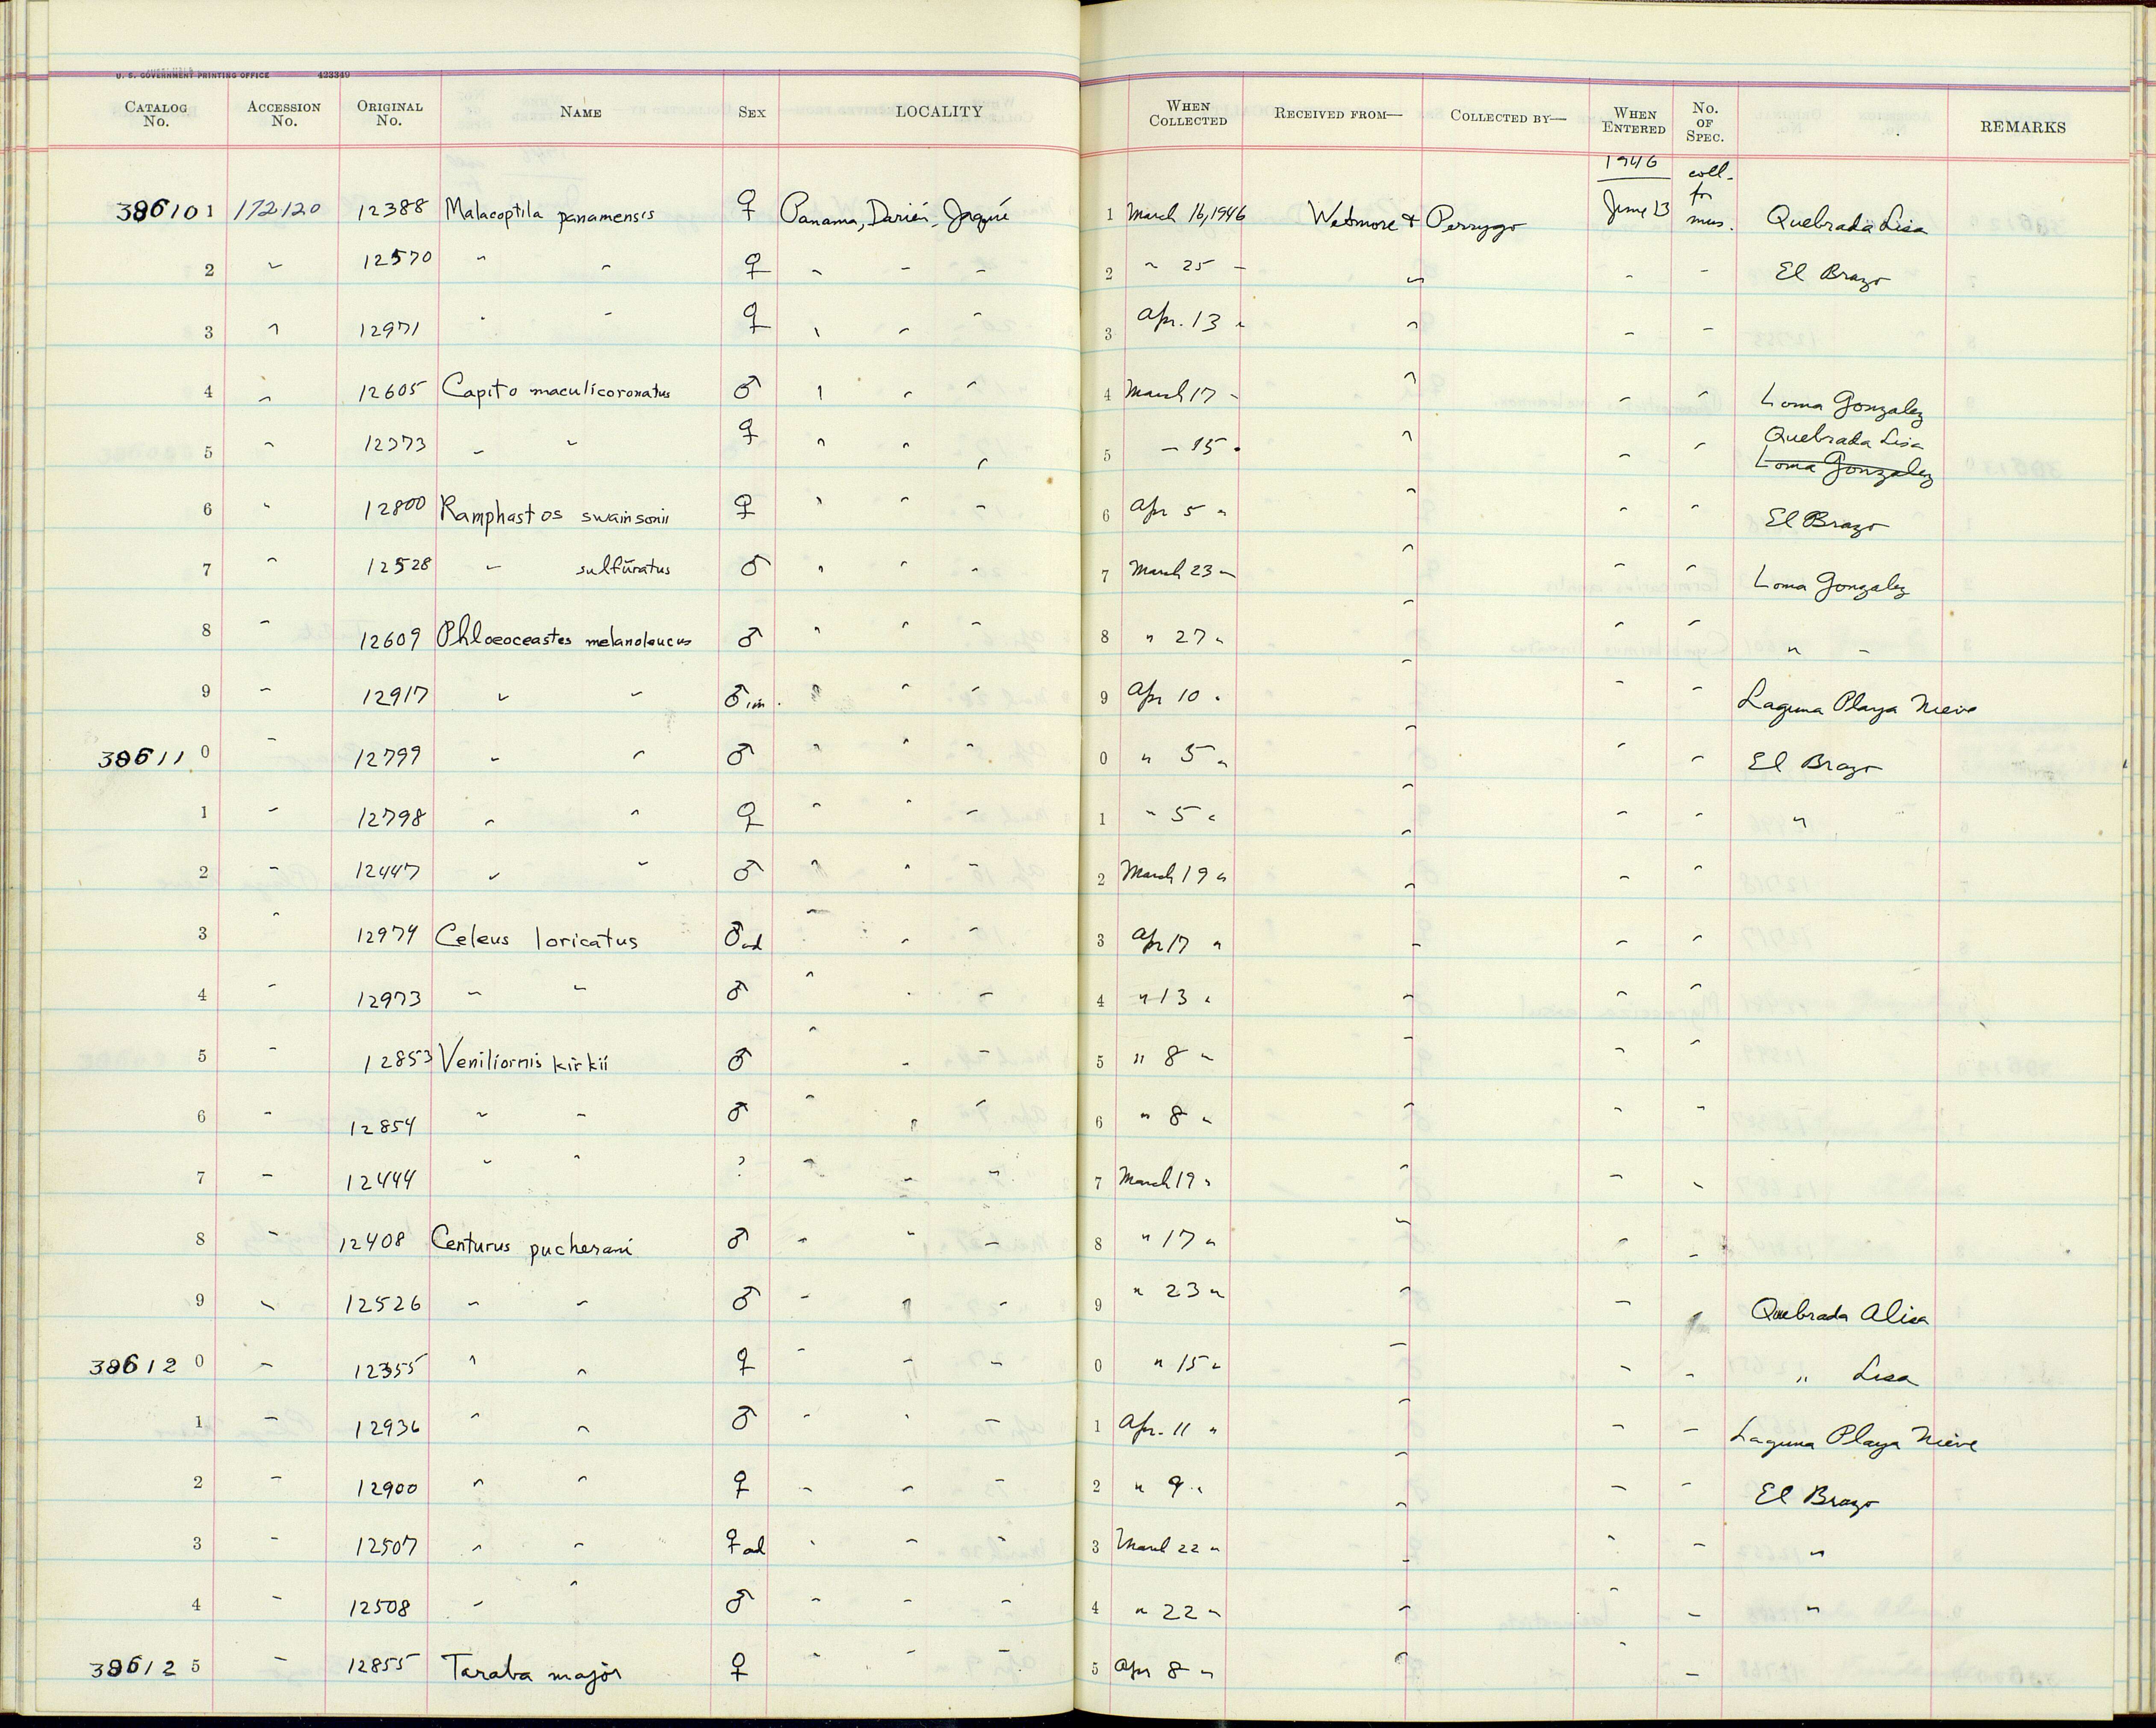 U. S. GOVERNMENT PRINTING OFFICE 423349
CATALOG No. ACCESSION No. ORIGINAL No. NAME SEX LOCALITY WHEN COLLECTED RECEIVED FROM— COLLECTED BY— WHEN ENTERED No. OF SPEC. REMARKS
386101 172120 12388 Malacoptila panamensis ♀ Panama, Darién, Jaqué 1 March 16, 1946 Wetmore & Perrygo 1946 June 13 coll. for mus. Quebrada Lisa
2 " 12570 " " ♀ " " " 2 " 25 " " " " El Brazo
3 " 12971 " " ♀ " " " 3 Apr. 13 " " " "
4 " 12605 Capito maculicoronatus ♂ " " " 4 March 17 " " " " Loma Gonzalez
5 " 12373 " " ♀ " " " 5 " 15 " " " " Quebrada Lisa
Loma Gonzalez
6 " 12800 Ramphastos swainsonii ♀ " " " 6 Apr 5 " " " " El Brazo
7 " 12528 " sulfuratus ♂ " " " 7 March 23 " " " " Loma Gonzalez
8 " 12609 Phloeoceastes melanoleucus ♂ " " " 8 " 27 " " " " " "
9 " 12917 " " ♂ im. " " " 9 Apr 10 " " " " Laguna Playa Nieve
386110 " 12799 " " ♂ " " " 0 " 5 " " " " El Brazo
1 " 12798 " " ♀ " " " 1 " 5 " " " " "
2 " 12447 " " ♂ " " " 2 March 19 " " " "
3 " 12974 Celeus loricatus ♂ ad " " " 3 Apr 17 " " " "
4 " 12973 " " ♂ " " " 4 " 13 " " " "
5 " 12853 Veniliornis kirkii ♂ " " " 5 " 8 " " " "
6 " 12854 " " ♂ " " " 6 " 8 " " " "
7 " 12444 " " ? " " " 7 March 19 " " " "
8 " 12408 Centurus pucherani ♂ " " " 8 " 17 " " " "
9 " 12526 " " ♂ " " " 9 " 23 " " " " Quebrada Alisa
386120 " 12355 " " ♀ " " " 0 " 15 " " " " " Lisa
1 " 12936 " " ♂ " " " 1 Apr. 11 " " " " Laguna Playa Nieve
2 " 12900 " " ♀ " " " 2 " 9 " " " " El Brazo
3 " 12507 " " ♀ ad " " " 3 March 22 " " " " "
4 " 12508 " " ♂ " " " 4 " 22 " " " " "
386125 " 12855 Taraba major ♀ " " " 5 Apr 8 " " " "